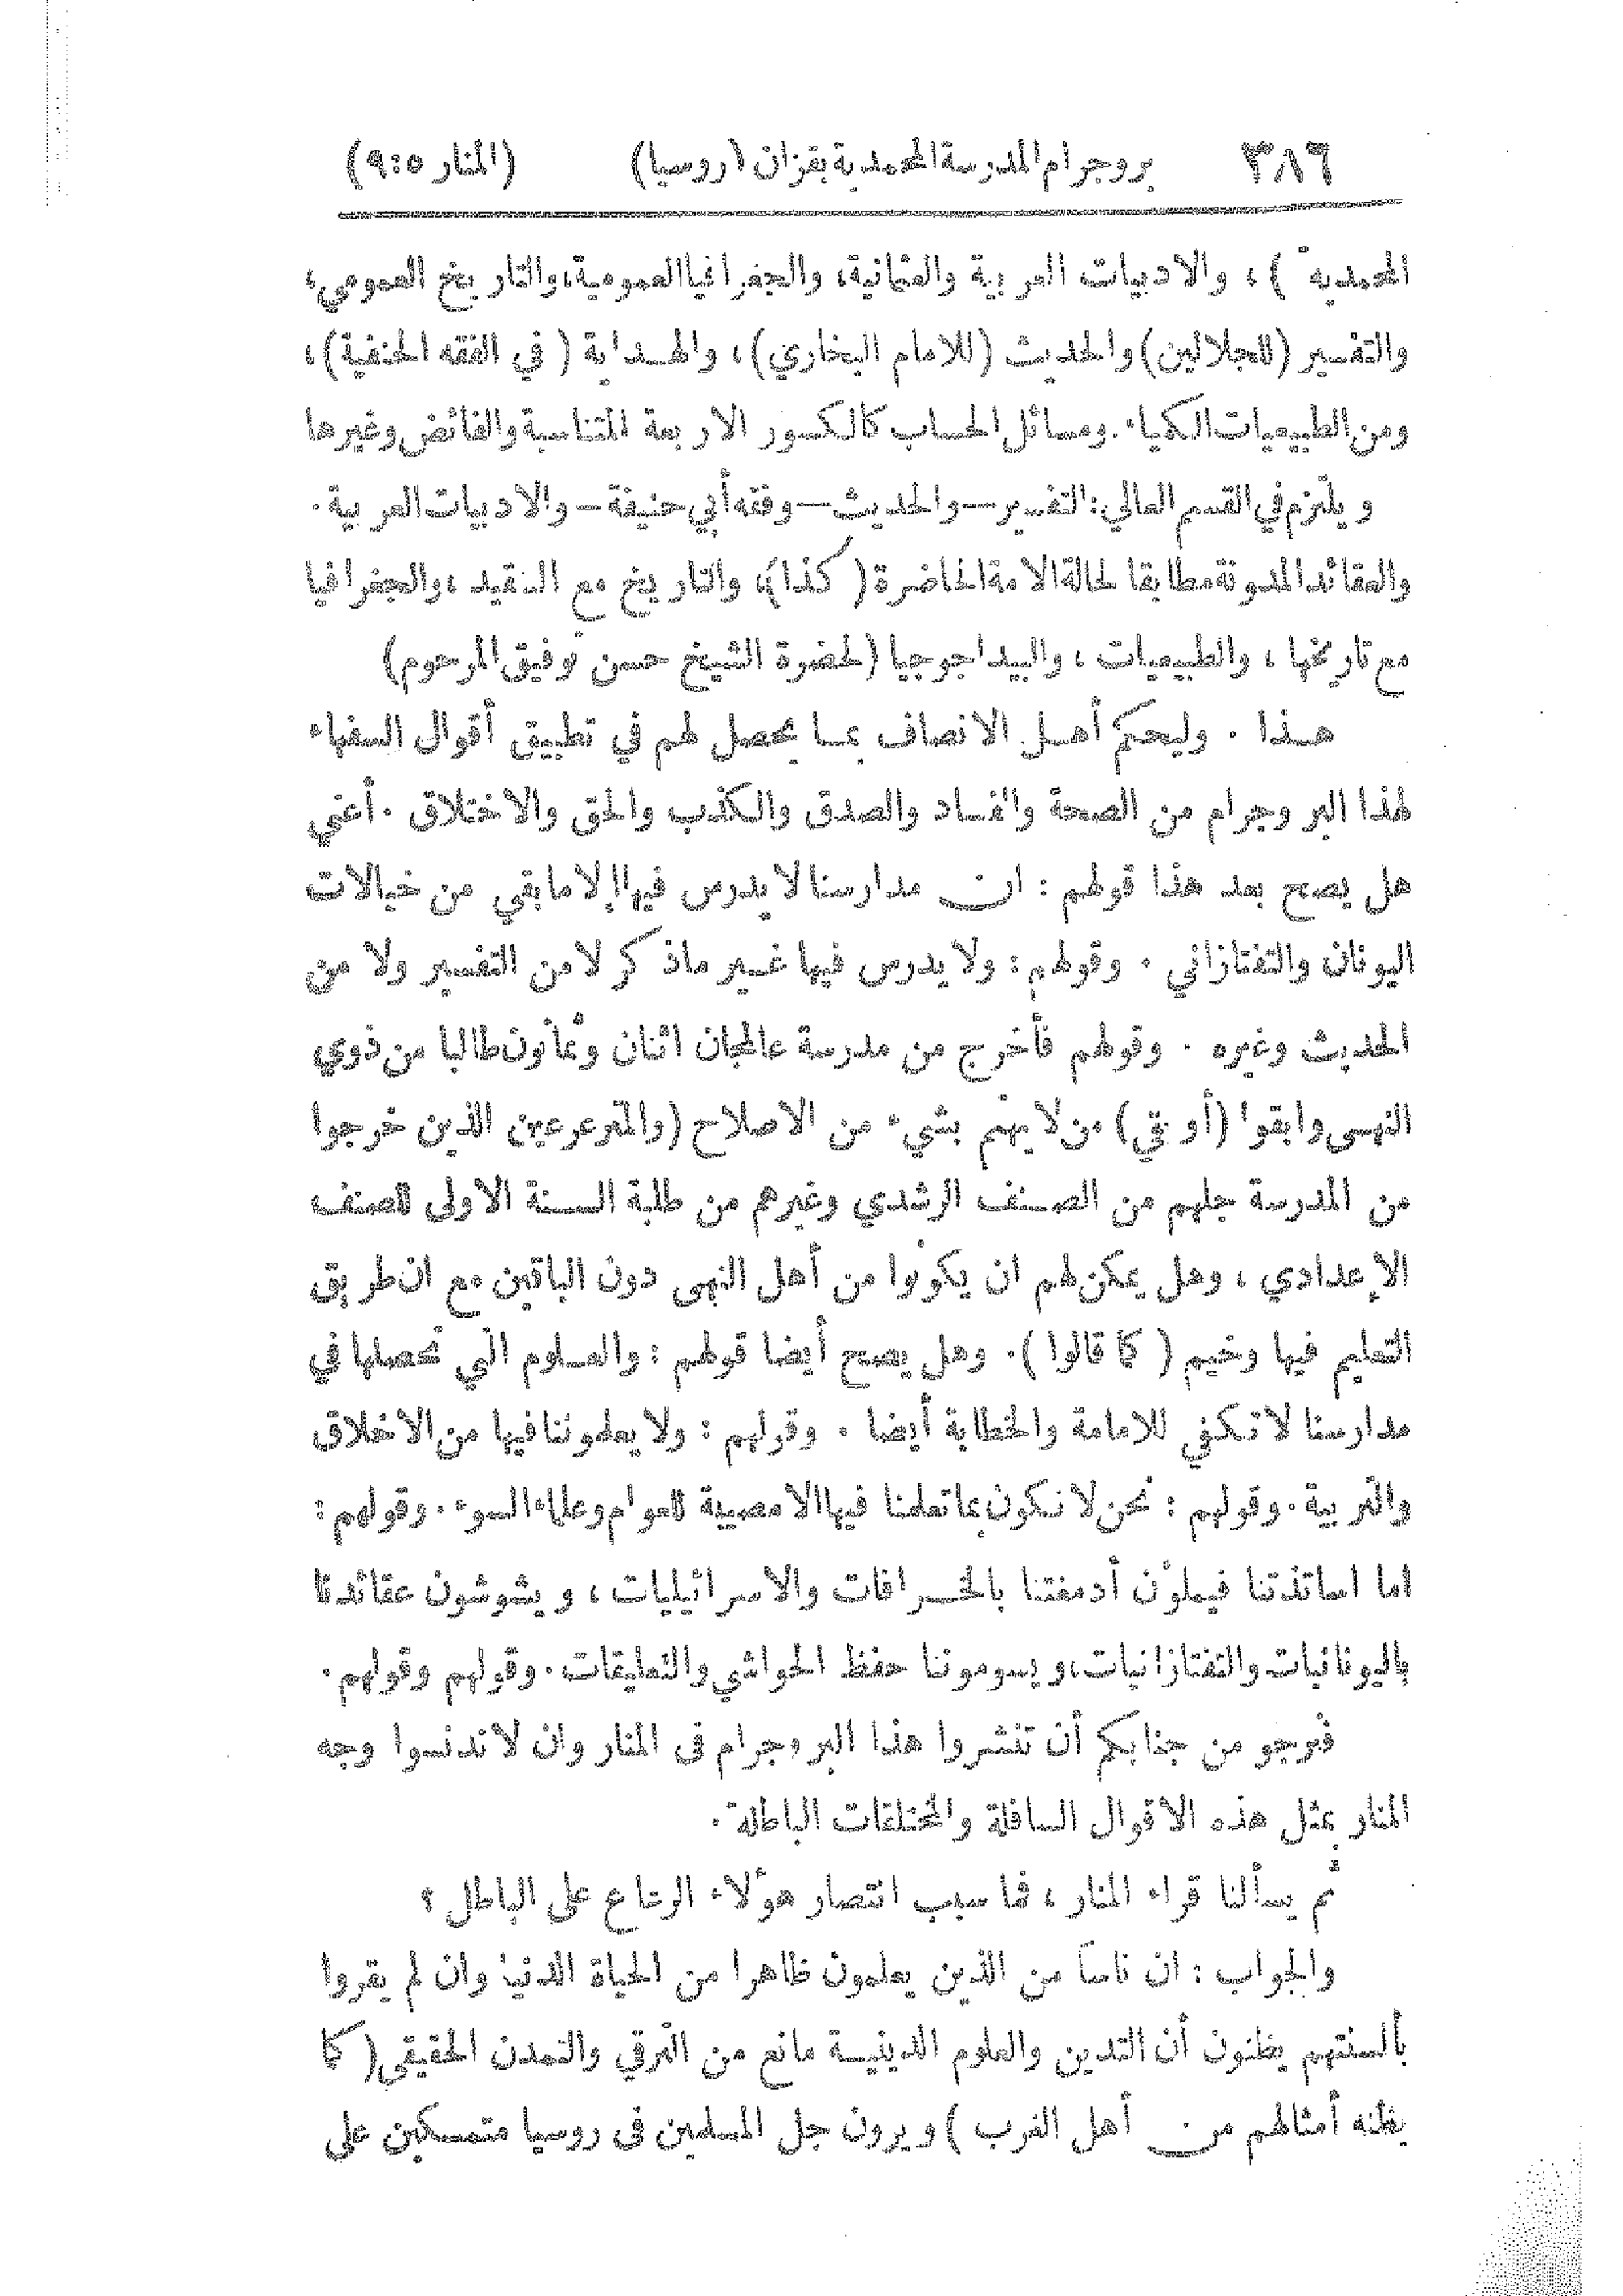 ٣٨٦ بروجرام المدرسة المحمدية بقزان (روسيا) (المنار ٥ : ٩)
المحمدية )، والادبيات العربية والعثمانية، والجغرافيا العمومية، والتاريخ العمومي،
والتفسير (للجلالين) والحديث (للامام البخاري)، والهداية ( في الفقه الحنفية)،
ومن الطبيعيات الكمياء. ومسائل الحساب كالكسور الاربعة المتناسبة والفائض وغيرها
ويلتزم في القسم العالي: التفسير — والحديث — وفقه أبي حنيفة — والادبيات العربية.
والعقائد المدونة مطابقا لحالة الامة الحاضرة ( كذا )، والتاريخ مع التنقيد، والجغرافيا
مع تاريخها، والطبيعيات، والبيداجوجيا (لحضرة الشيخ حسن توفيق المرحوم)
هذا . وليحكم أهل الانصاف بما يحصل لهم في تطبيق أقوال السفهاء
لهذا البروجرام من الصحة والفساد والصدق والكذب والحق والاختلاق . أعني
هل يصح بعد هذا قولهم : ان مدارسنا لا يدرس فيها إلا ما بقي من خيالات
اليونان والتفتازاني . وقولهم : ولا يدرس فيها غير ماذكر لا من التفسير ولا من
الحديث وغيره . وقولهم فأخرج من مدرسة عالمجان اثنان وثمانون طالبا من ذوي
النهى وابقوا (أو بقي) من لا يهتم بشيء من الاصلاح (والمترعرعين الذين خرجوا
من المدرسة جلهم من الصنف الرشدي وغيرهم من طلبة السنة الاولى للصنف
الإعدادي ، وهل يمكن لهم ان يكونوا من أهل النهى دون الباقين مع ان طريق
التعليم فيها وخيم ( كما قالوا ). وهل يصح أيضا قولهم : والعلوم التي نحصلها في
مدارسنا لا تكفي للامامة والخطابة أيضا . وقولهم : ولا يعلموننا فيها من الاخلاق
والتربية . وقولهم : نحن لا نكون بما تعلمنا فيها الا مصيبة للعوام وعلماء السوء . وقولهم :
اما اساتذتنا فيملؤن أدمغتنا بالخرافات والاسرائيليات ، ويشوشون عقائدنا
باليونانيات والتفتازانيات، ويسوموننا حفظ الحواشي والتعليقات . وقولهم وقولهم .
فنرجو من جنابكم أن تنشروا هذا البروجرام في المنار وان لا تدنسوا وجه
المنار بمثل هذه الاقوال السافلة والمختلقات الباطلة .
ثم يسألنا قراء المنار ، فما سبب انتصار هؤلاء الرعاع على الباطل ؟
والجواب : ان ناسا من الذين يعلمون ظاهرا من الحياة الدنيا وان لم يقروا
بألسنتهم يظنون أن التدين والعلوم الدينية مانع من الترقي والتمدن الحقيقي ( كما
يظنه أمثالهم من أهل الغرب ) ويرون جل المسلمين في روسيا متمسكين على